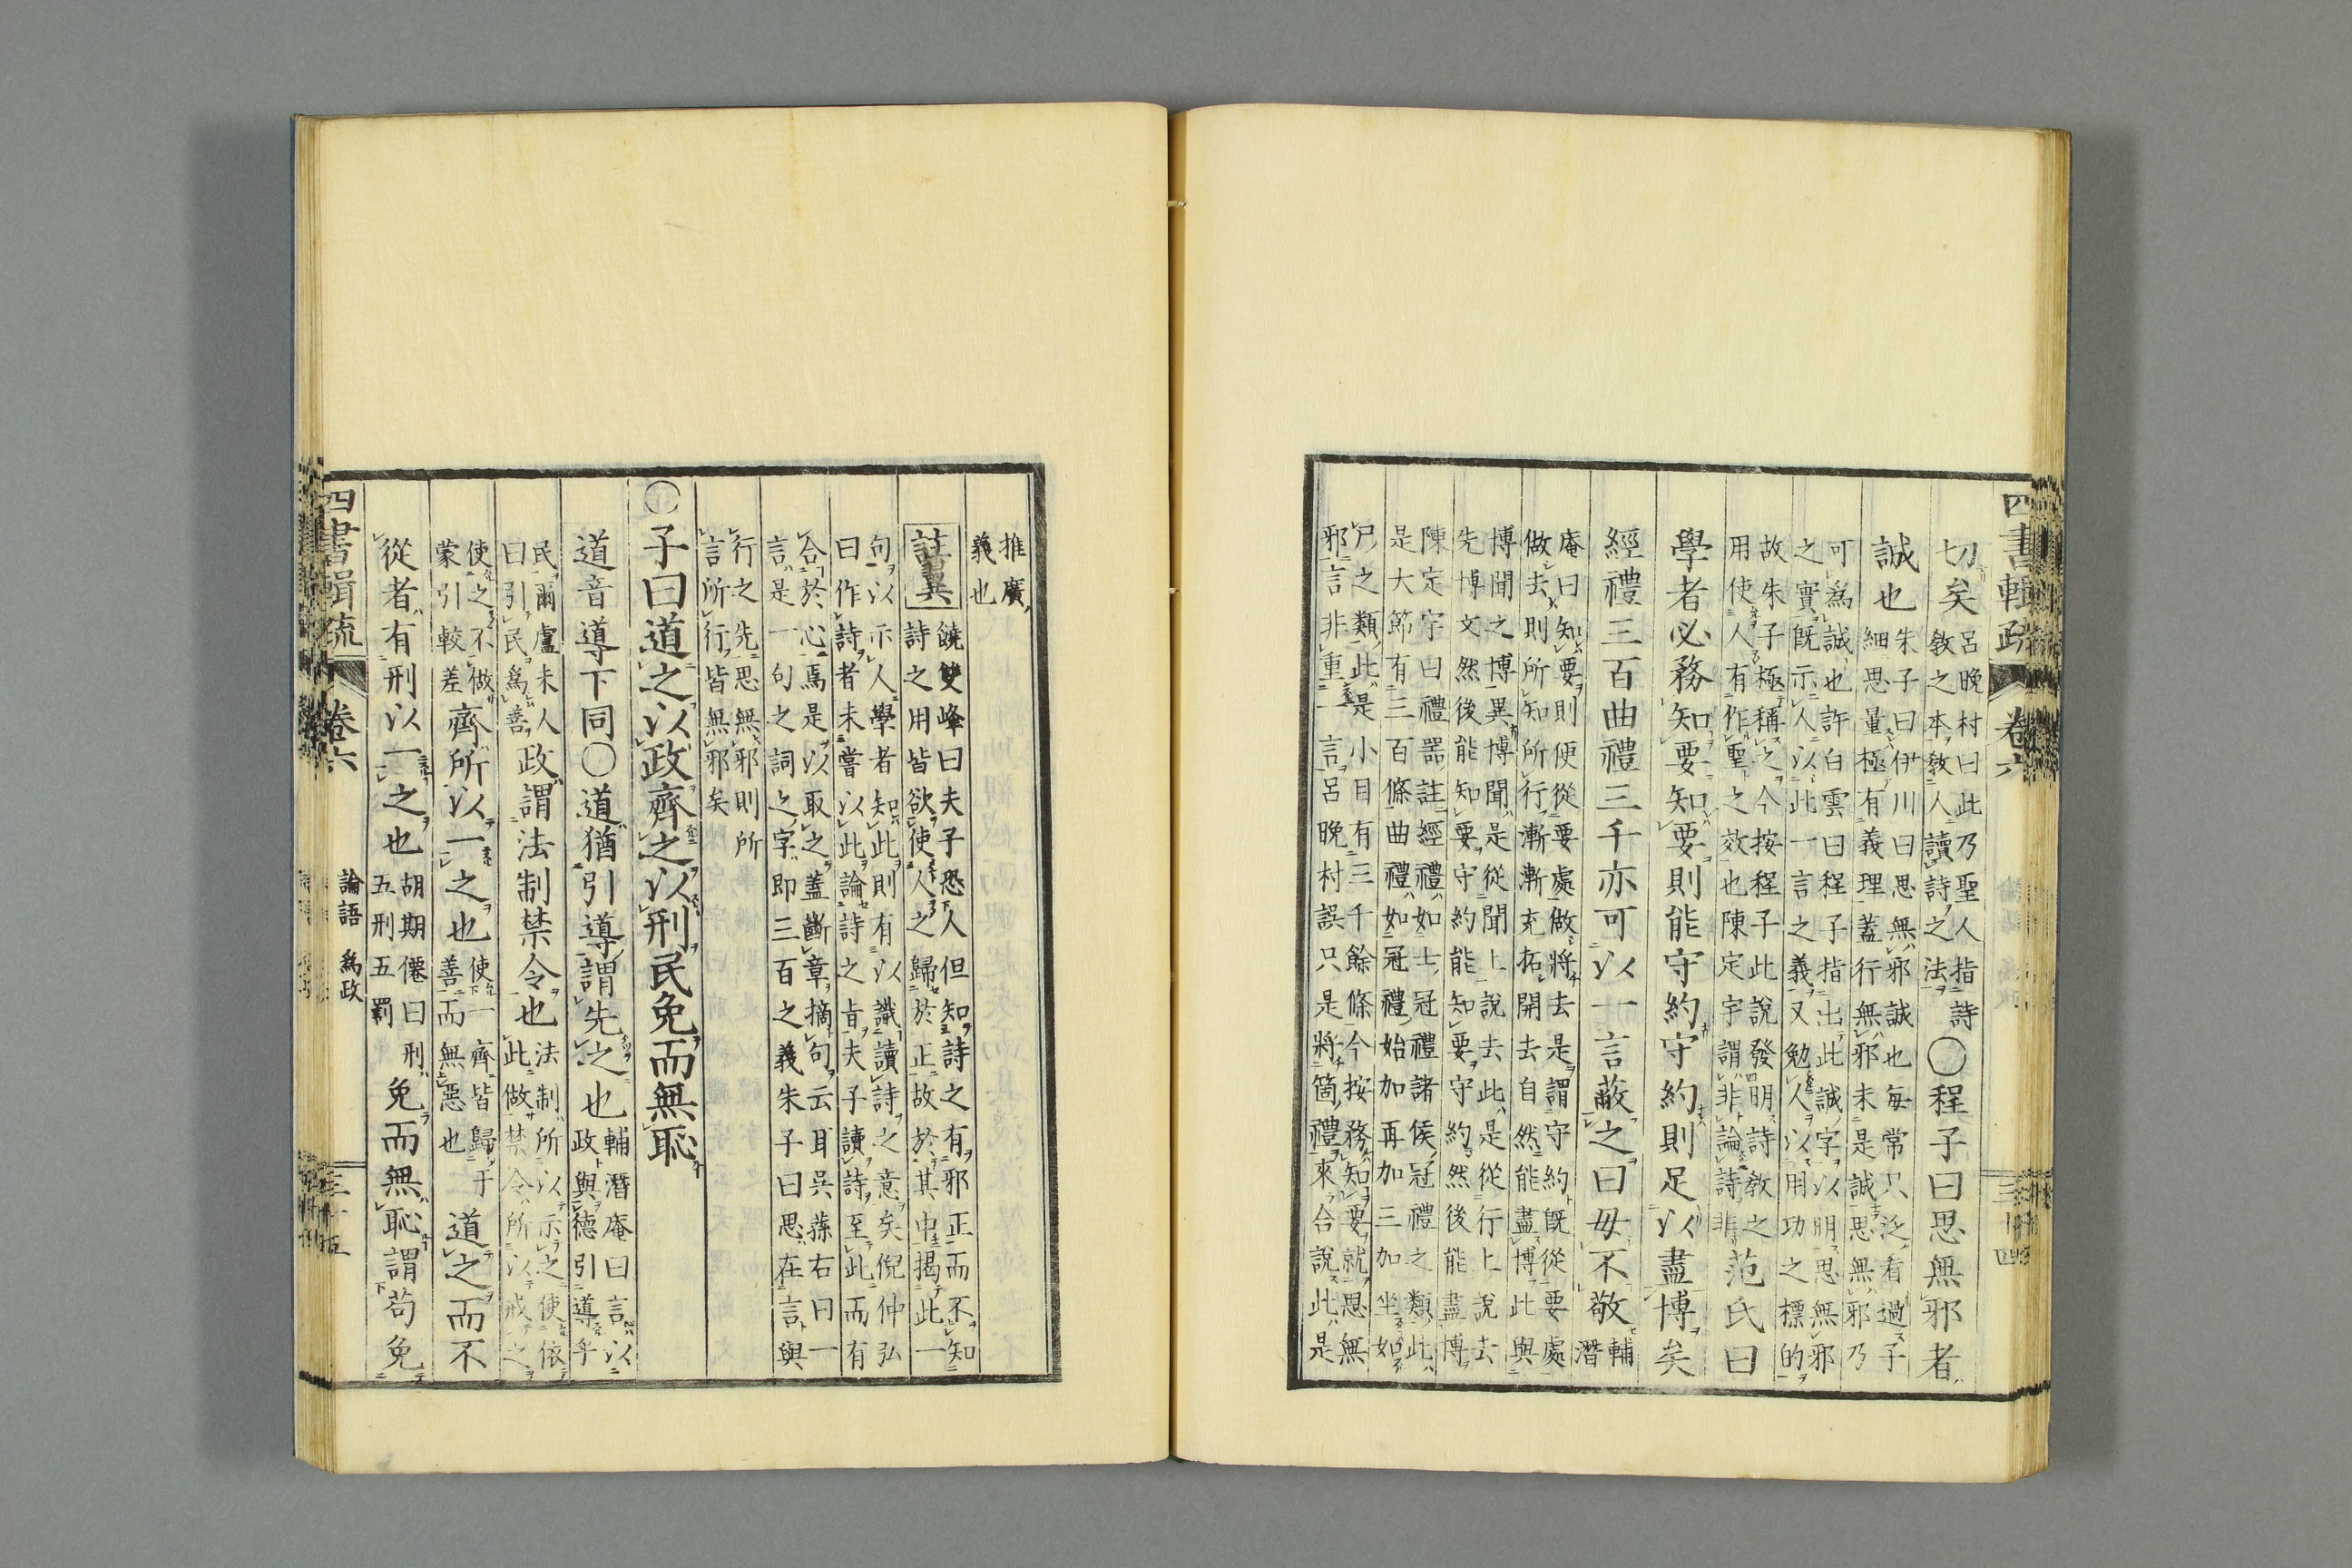 四書輯疏 卷六 三十四
切矣呂晚村曰此乃聖人指詩
敎之本敎人讀詩之法○程子曰思無邪者
誠也朱子曰伊川曰思無邪誠也每常只泛看過子
細思量極有義理蓋行無邪未是誠思無邪乃
可爲誠也許白雲曰程子指出此誠字以明思無邪
之實旣示人以此一言之義又勉人以用功之標的
故朱子極稱之今按程子此說發明詩敎之
用使人有作聖之效也陳定宇謂非論詩非范氏曰
學者必務知要知要則能守約守約則足以盡博矣
經禮三百曲禮三千亦可以一言蔽之曰毋不敬輔
潛
庵曰知要則便從要處做將去是謂守約旣從要處
做去則所知所行漸漸充拓開去自然能盡博此與
博聞之博異博聞是從聞上說去此是從行上說去
先博文然後能知要守約能知要守約然後能盡博
陳定宇曰禮器註經禮如士冠禮諸侯冠禮之類此
是大節有三百條曲禮如冠禮始加再加三加坐如
尸之類此是小目有三千餘條今按務知要就思無
邪言非重一言呂晚村誤只是將箇禮來合說此是
推廣
義也
註異饒雙峰曰夫子恐人但知詩之有邪正而不知
詩之用皆欲使人之歸於正故於其中揭此一
句以示人學者知此則有以識讀詩之意矣倪仲弘
曰作詩者未嘗以此論詩之旨夫子讀詩至此而有
合於心焉是以取之蓋斷章摘句云耳吳蓀右曰一
言是一句之詞之字卽三百之義朱子曰思在言與
行之先思無邪則所
言所行皆無邪矣
○子曰道之以政齊之以刑民免而無恥
道音導下同○道猶引導謂先之也輔潛庵曰言以
政與德引導乎
民爾盧未人
曰引民爲善政謂法制禁令也法制所以示之使依
此做禁令所以戒之
使之不做
蒙引較差齊所以一之也使一齊皆歸于
善而無惡也道之而不
從者有刑以一之也胡期僊曰刑
五刑五罰免而無恥謂苟免
四書輯疏 卷六 論語 爲政 三十五